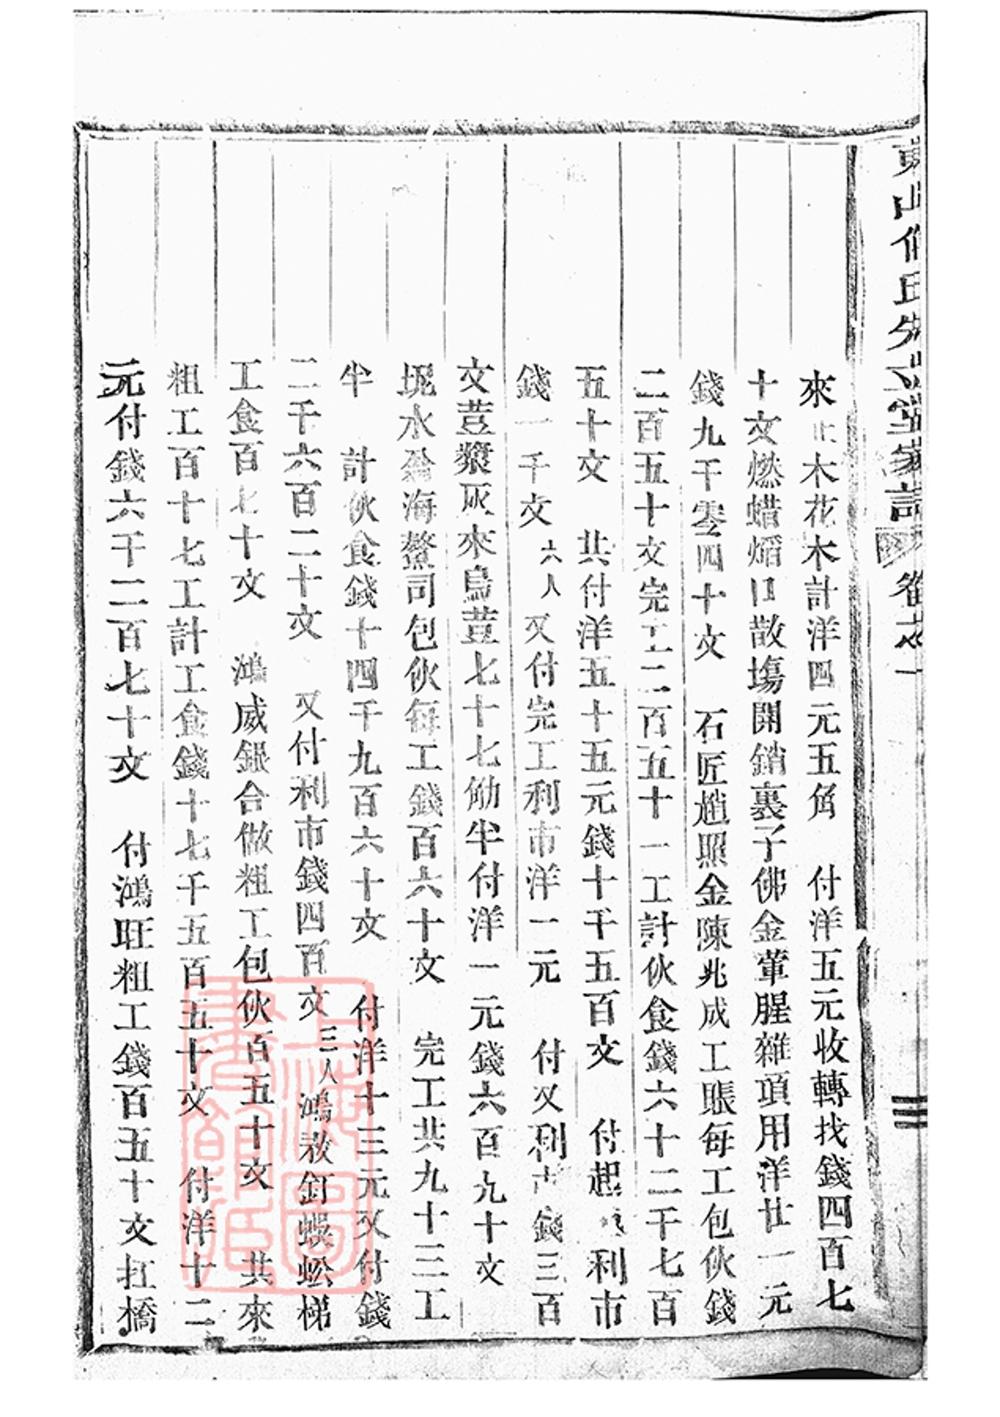 卷之一
三
來 木花木計洋四元五角 付洋五元收轉找錢四百七
十文燃蜡熖口散塲開銷裏子佛金葷腥雜項用洋廿一元
錢九千零四十文 石匠趙照金陳兆成工賬每工包伙錢
二百五十文完工二百五十一工計伙食錢六十二千七百
五十文 共付洋五十五元錢十千五百文 付起 利市
錢一千文六人又付完工利市洋一元 付又利市錢三百
文荳漿灰來烏荳七十七觔半付洋一元錢六百九十文
坭水 海鰲司包伙每工錢百六十文 完工共九十三工
半 計伙食錢十四千九百六十文 付洋十三元又付錢
二千六百二十文 又付利市錢四百文三人鴻 釘蜈蚣梯
工食百七十文 鴻威銀合做粗工包伙百五十文 共來
粗工百十七工計工食錢十七千五百五十文 付洋十二
元付錢六千二百七十文 付鴻旺粗工錢百五十文扛橋
上海圖書館藏